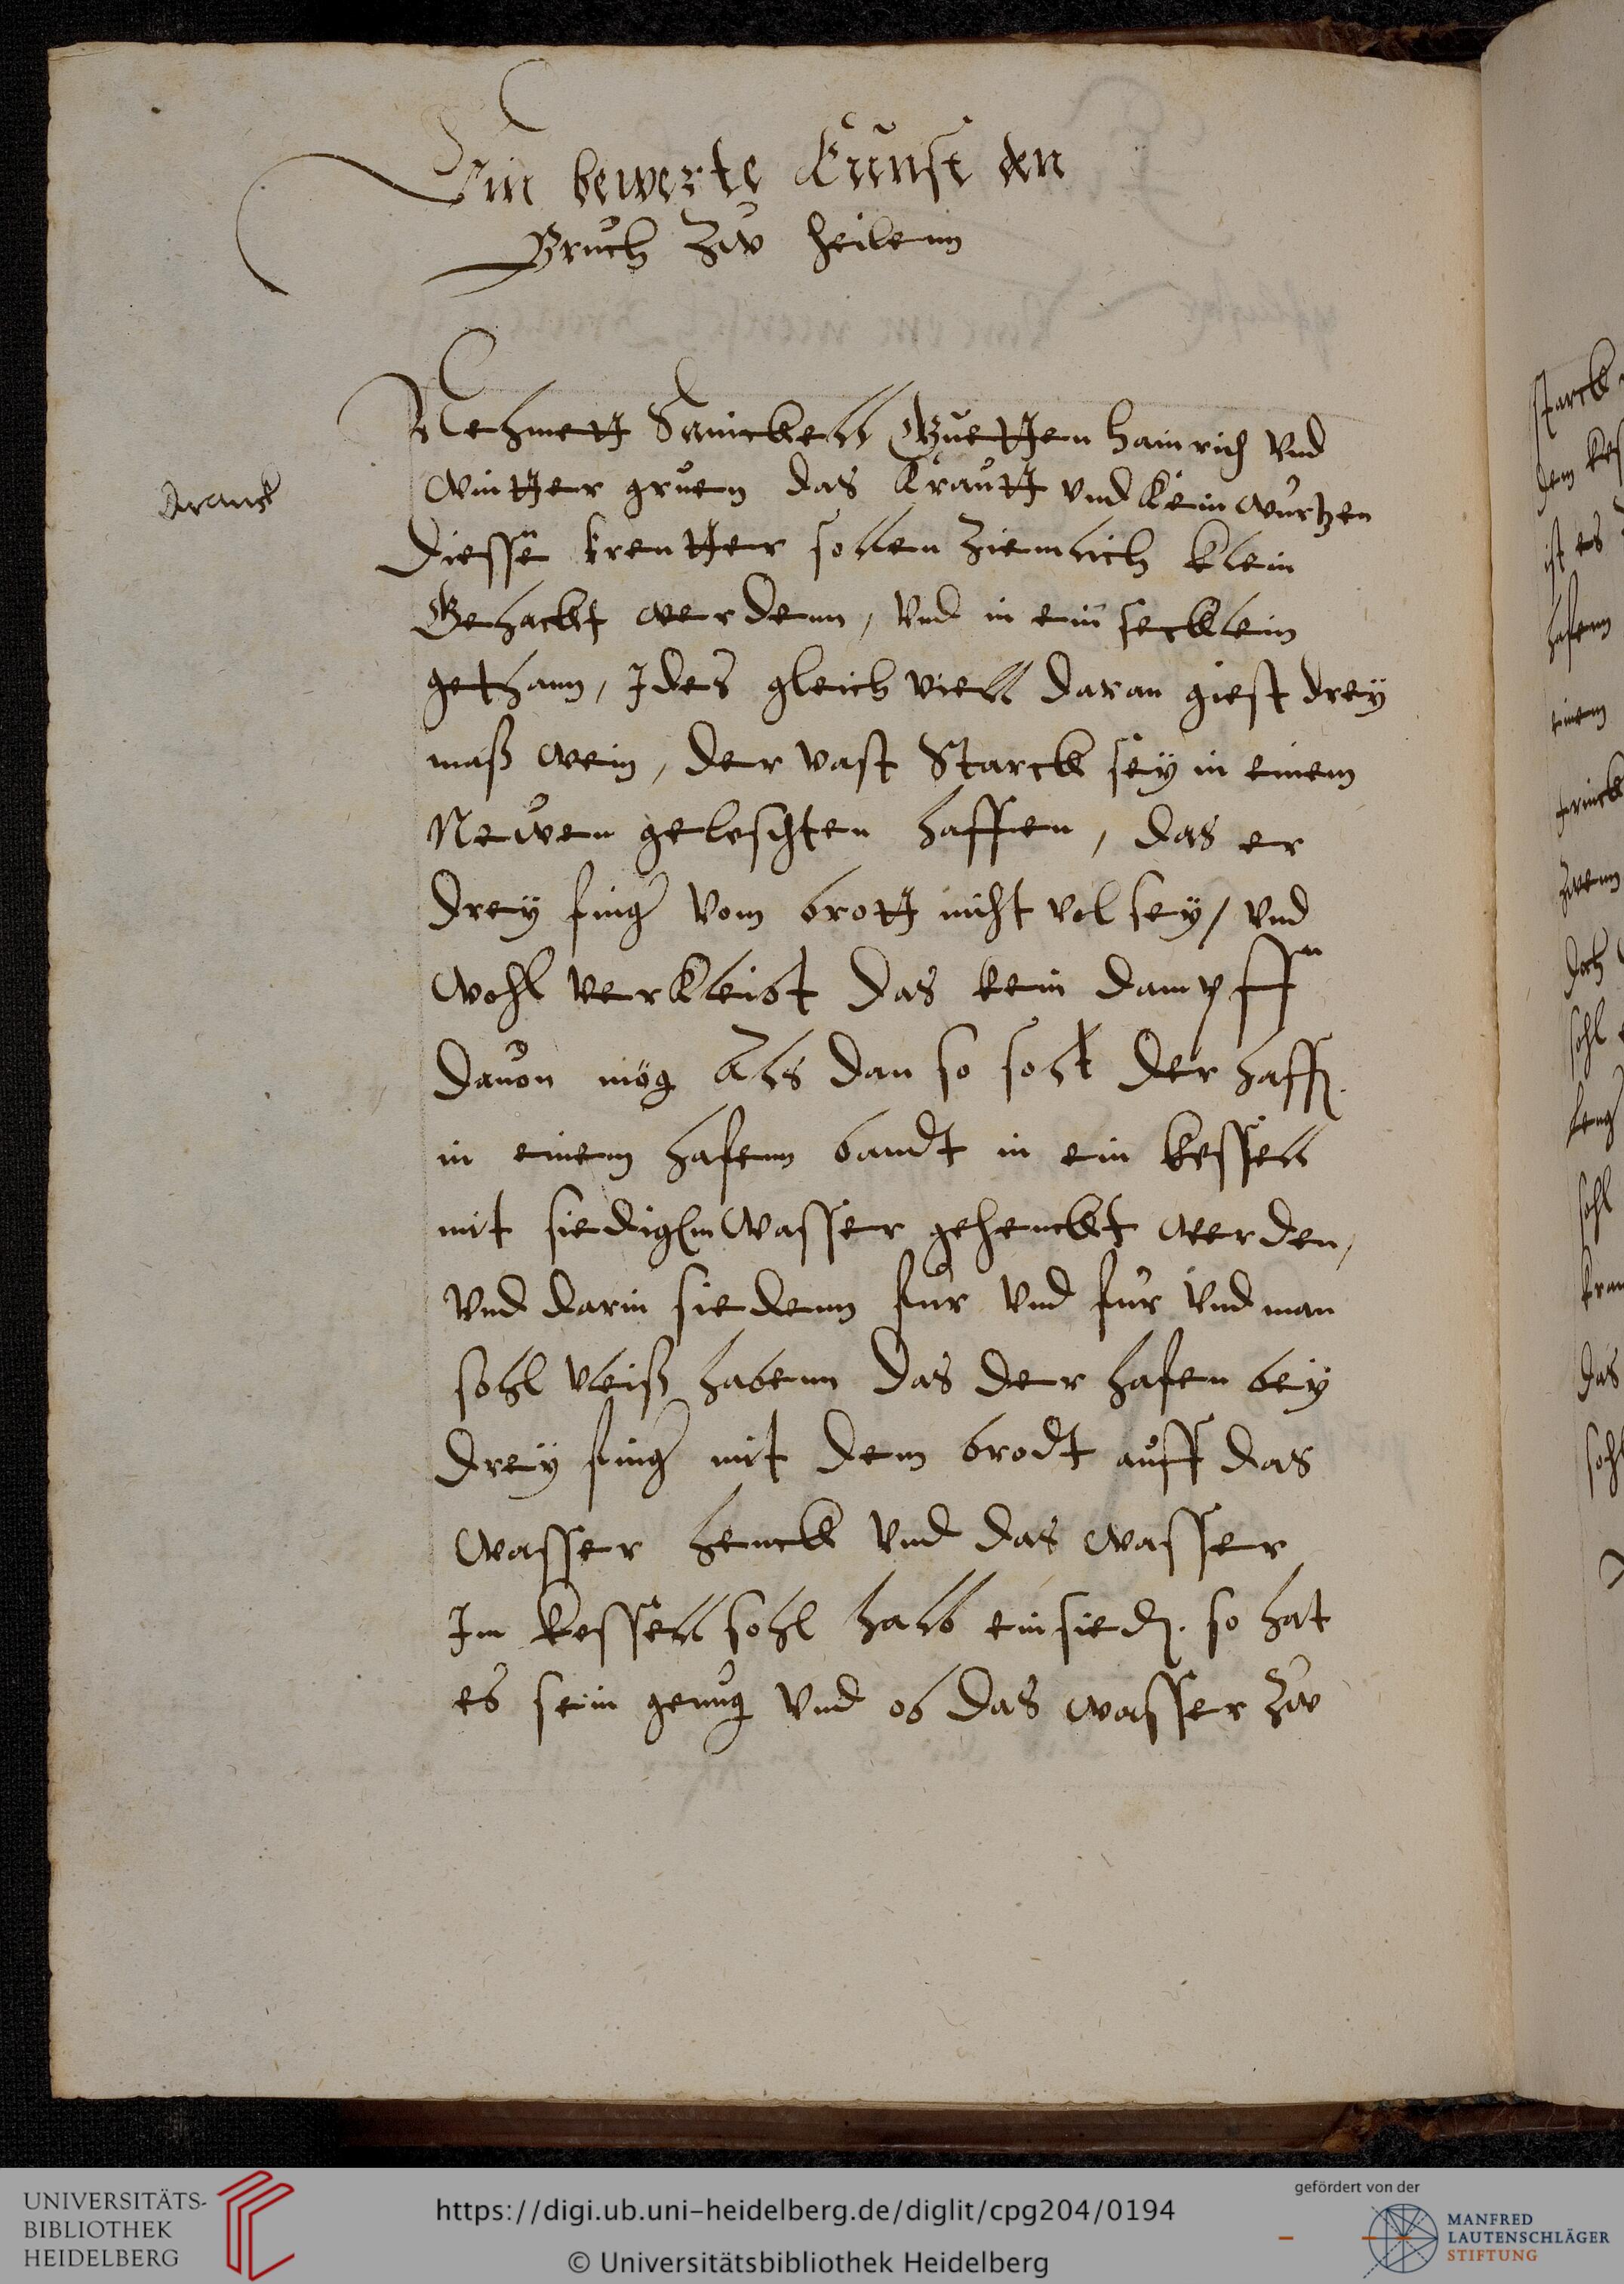 Ein bewerte Kunst den
Bruch Zw heilenn
Nehmett Sanickell Guetten hainrich vnd
wintter gruen das Krautt vnd kein wurtzen
Diesse kreutter sollen ziemlich klein
Gehackt werdenn, vnd in ein secklein
gethann, Ides gleich viell daran giest drey
maß wein, der vast Starck sey in einem
Newen geleschten haffen, das er
drey finger vom brott nicht vol sey, vnd
wohl verkleibt das kein dampff
dauon mög Als dan so solt der haffen
in einem hafenn bandt in ein kessell
mit siedigem wasser gehenckt werden,
vnd darin siedenn fur vnd fur vnd man
sohl vleiß habenn das der hafen bey
drey finger mit dem brodt auff das
wasser henck vnd das wasser
Im kessell sohl halb einsieden. so hat
es sein genug vnd ob das wasser Zw
starck
dem
ist es
hafenn
einem
trinck
zwenn
doch
sohl
sohl
das
UNIVERSITÄTS-
BIBLIOTHEK
HEIDELBERG
https://digi.ub.uni-heidelberg.de/diglit/cpg204/0194
© Universitätsbibliothek Heidelberg
gefördert von der
MANFRED
LAUTENSCHLÄGER
STIFTUNG